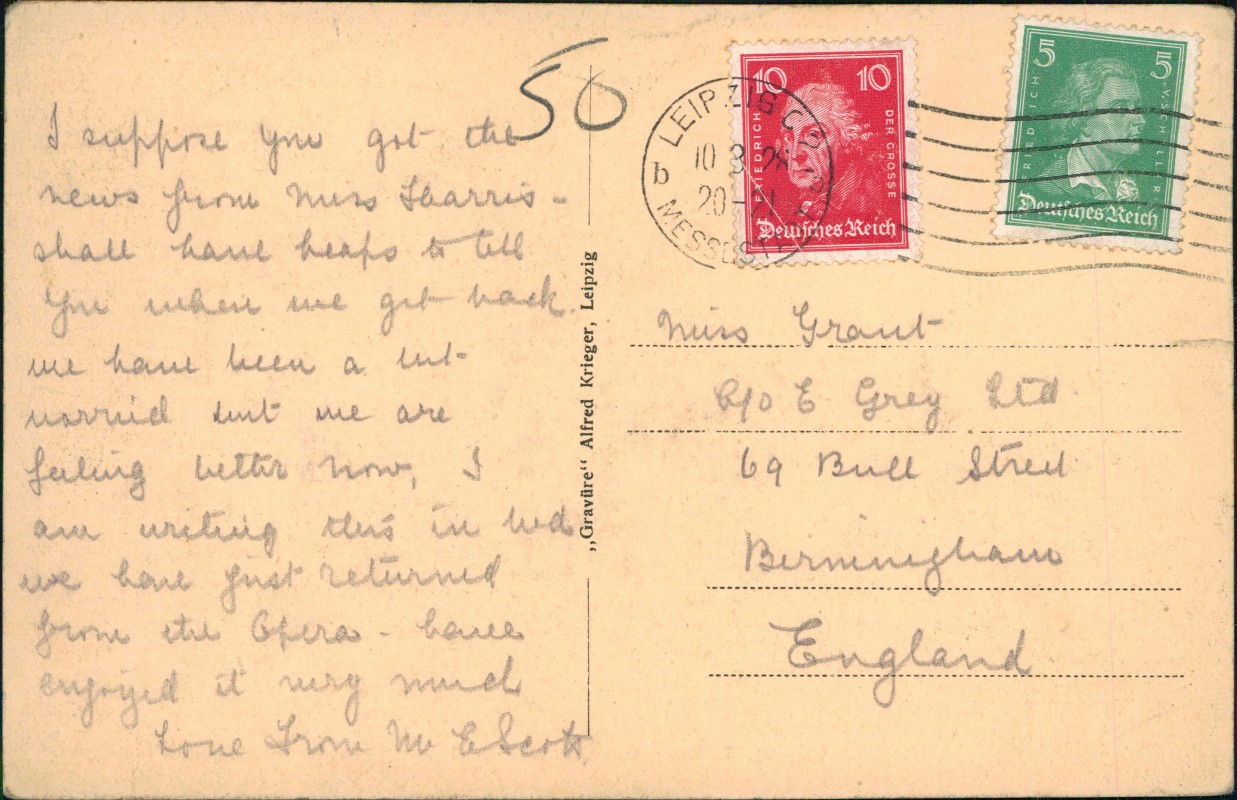 I suppose you got the
news from Miss Harris -
shall have heaps to tell
you when we get back.
we have been a bit
worried but we are
feeling better now, I
am writing this in bed
we have just returned
from the Opera - have
enjoyed it very much
Love from M E Scott
50
„Gravüre“ Alfred Krieger, Leipzig
LEIPZIG C
b
10 3 28
20-21
MESSESTADT
10 10
FRIEDRICH DER GROSSE
Deutsches Reich
5 5
FRIEDRICH V. SCHILLER
Deutsches Reich
Miss Grant
C/o E Grey Ltd
69 Bull Street
Birminigham
England